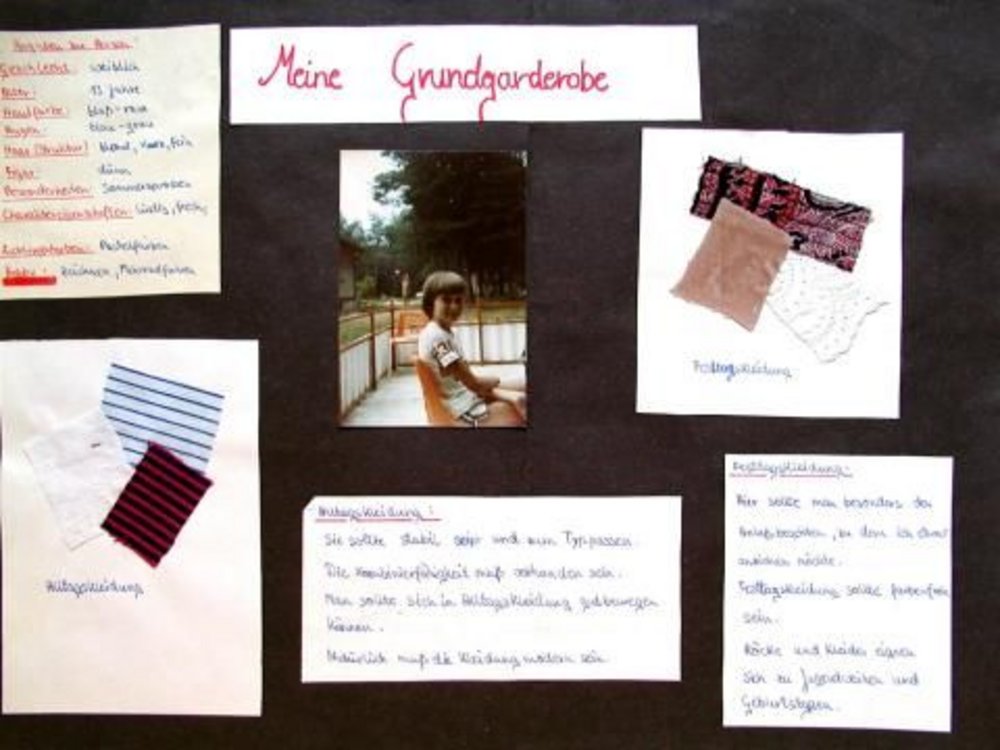 Angaben zur Person
Geschlecht: weiblich
Alter: 13 Jahre
Hautfarbe: blaß-rosa
Augen: blau-grau
Haar (Struktur) blond, kurz, fein
Figur: dünn
Besonderheiten: Sommersprossen
Charaktereigenschaften: lustig, frech,
Lieblingsfarben: Pastellfarben
Hobby: zeichnen, Motorradfahren
Meine Grundgarderobe
Festtagskleidung
Alltagskleidung
Alltagskleidung:
Sie sollte stabil sein und zum Typ passen.
Die Kombinierfähigkeit muß vorhanden sein.
Man sollte sich in Alltagskleidung gut bewegen
können.
Natürlich muß die Kleidung modern sein.
Festtagskleidung:
Hier sollte man besonders den
Anlaß beachten, zu dem ich
möchte.
Festtagskleidung sollte
sein.
Röcke und Kleider eignen
sich zu Jugendweihen und
Geburtstagen.